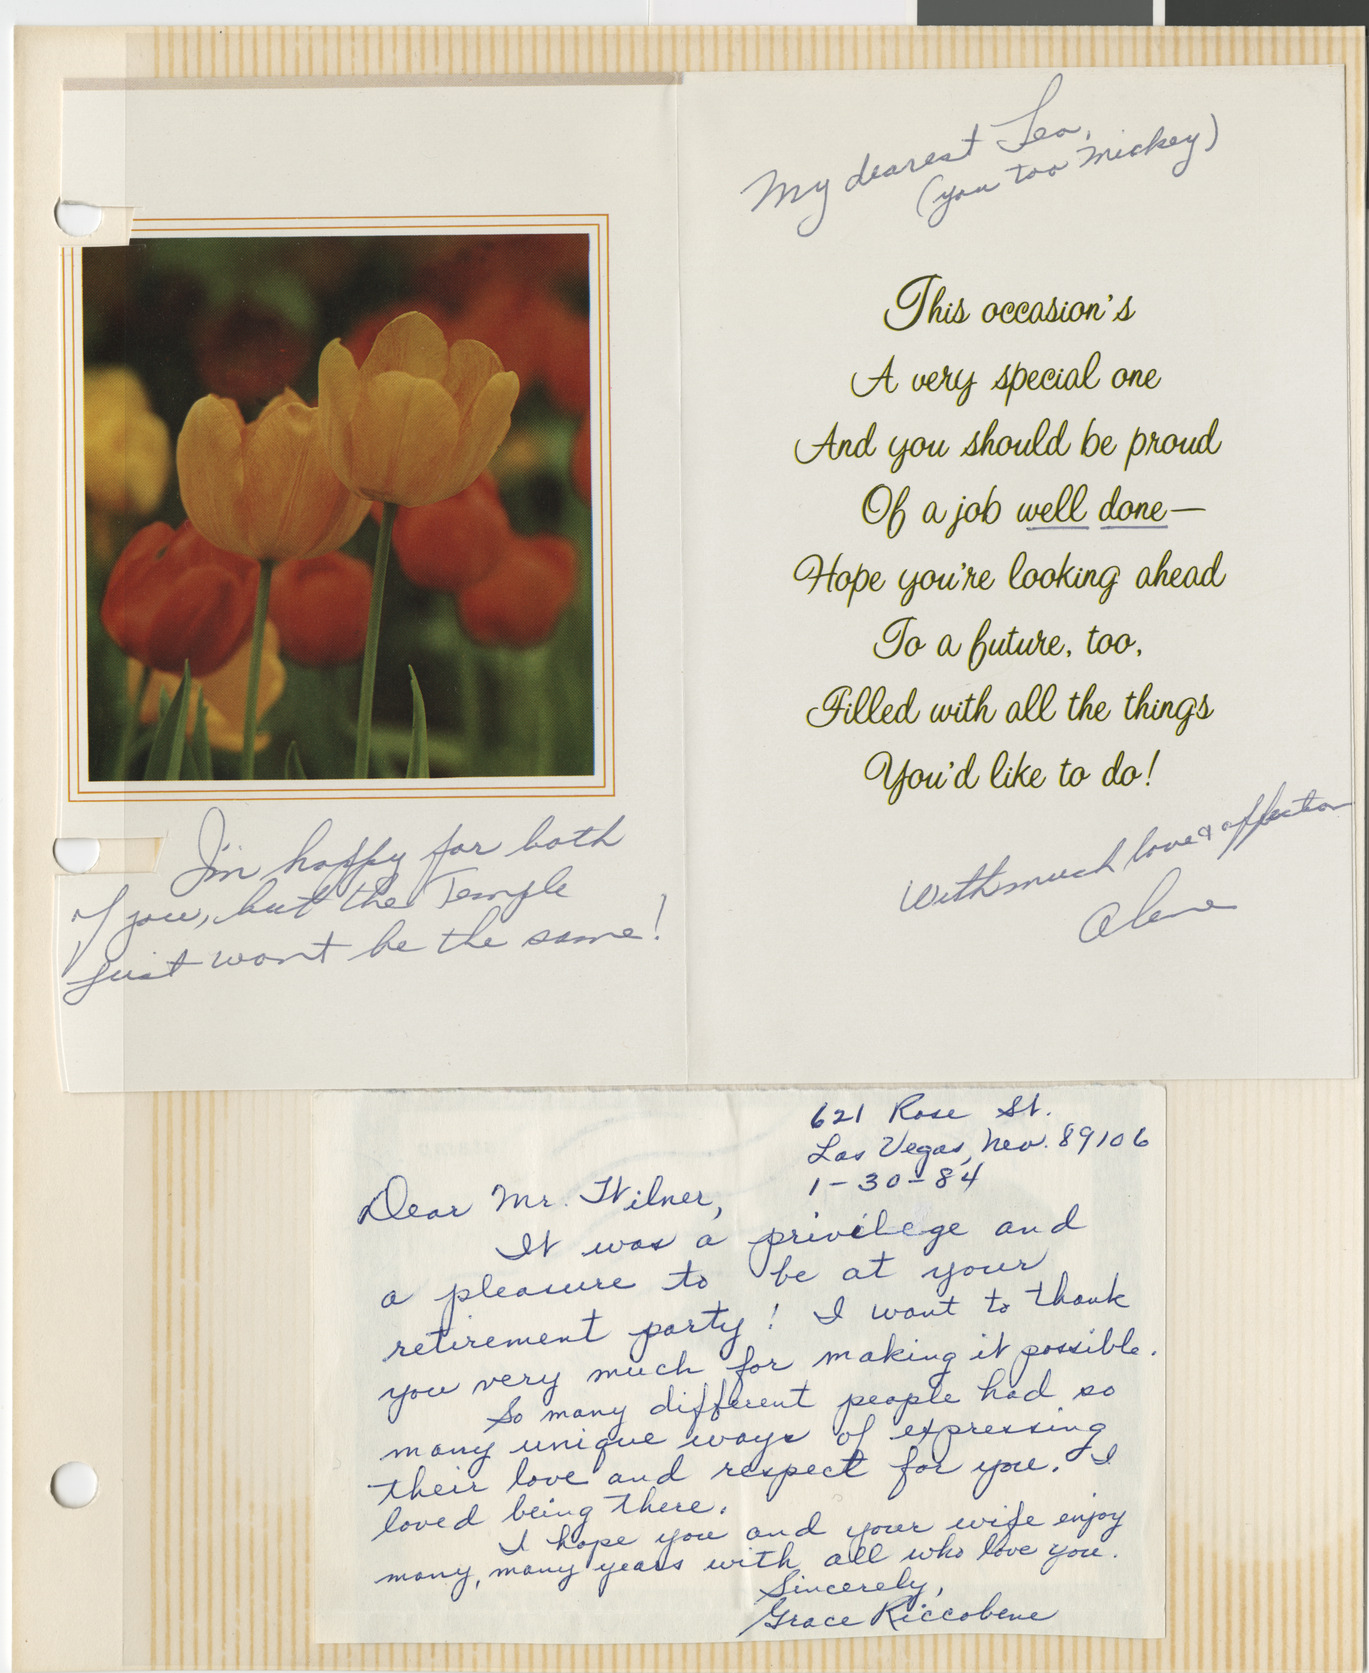 My dearest Leo,
(you too Mickey)
This occasion's
A very special one
And you should be proud
Of a job well done—
Hope you're looking ahead
To a future, too,
Filled with all the things
You'd like to do!
With much love & affection
Alene
I'm happy for both
of you, but the Temple
just won't be the same!
621 Rose St.
Las Vegas, Nev. 89106
1-30-84
Dear Mr. Wilner,
It was a privilege and
a pleasure to be at your
retirement party! I want to thank
you very much for making it possible.
So many different people had so
many unique ways of expressing
their love and respect for you. I
loved being there.
I hope you and your wife enjoy
many, many years with all who love you.
Sincerely,
Grace Riccobene